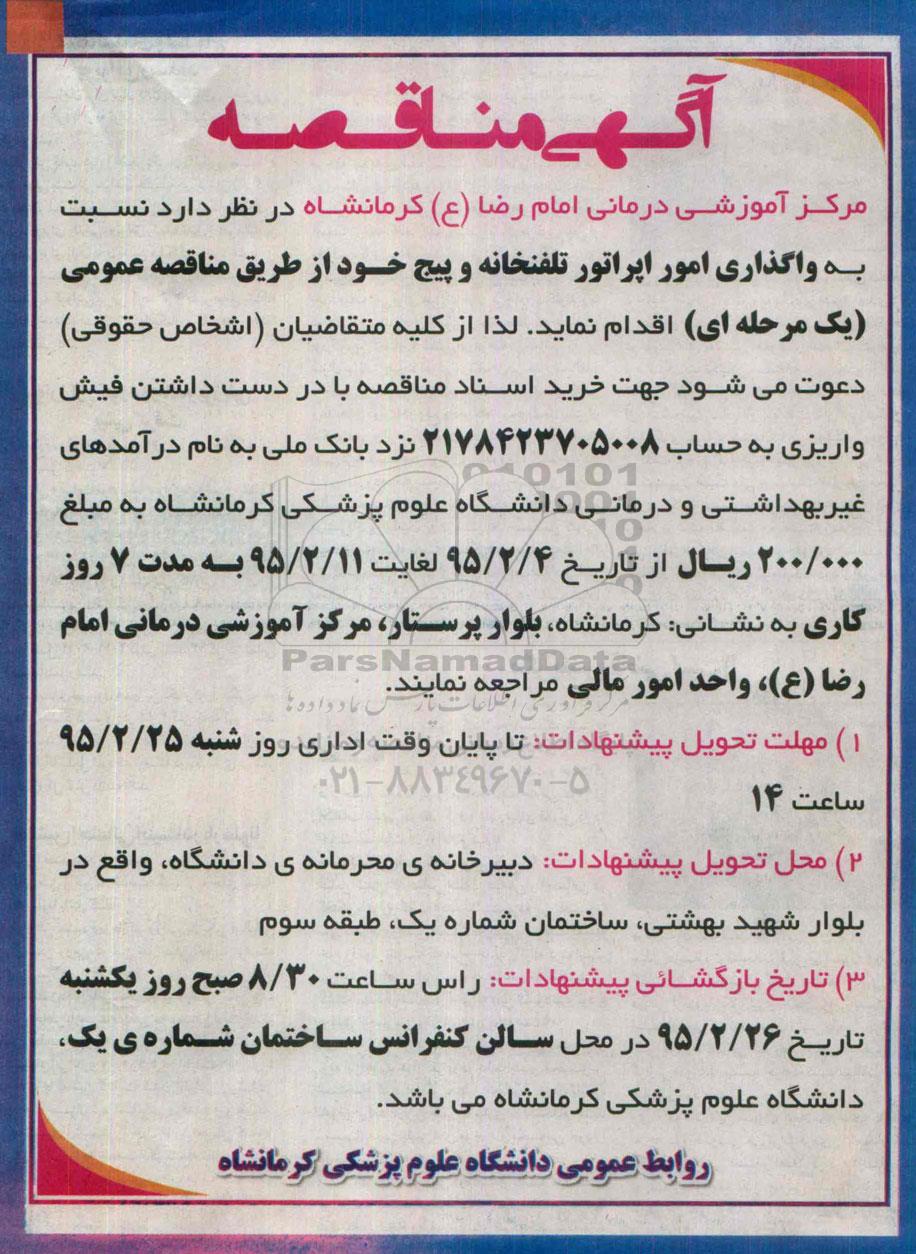 آگهی مناقصه
مرکز آموزشی درمانی امام رضا (ع) کرمانشاه در نظر دارد نسبت
به واگذاری امور اپراتور تلفنخانه و پیج خود از طریق مناقصه عمومی
(یک مرحله ای) اقدام نماید. لذا از کلیه متقاضیان (اشخاص حقوقی)
دعوت می شود جهت خرید اسناد مناقصه با در دست داشتن فیش
واریزی به حساب ۲۱۷۸۴۲۳۷۰۵۰۰۸ نزد بانک ملی به نام درآمدهای
غیربهداشتی و درمانی دانشگاه علوم پزشکی کرمانشاه به مبلغ
۲۰۰/۰۰۰ ریال از تاریخ ۹۵/۲/۴ لغایت ۹۵/۲/۱۱ به مدت ۷ روز
کاری به نشانی: کرمانشاه، بلوار پرستار، مرکز آموزشی درمانی امام
رضا (ع)، واحد امور مالی مراجعه نمایند.
۱) مهلت تحویل پیشنهادات: تا پایان وقت اداری روز شنبه ۹۵/۲/۲۵
ساعت ۱۴
۲) محل تحویل پیشنهادات: دبیرخانه ی محرمانه ی دانشگاه، واقع در
بلوار شهید بهشتی، ساختمان شماره یک، طبقه سوم
۳) تاریخ بازگشائی پیشنهادات: راس ساعت ۸/۳۰ صبح روز یکشنبه
تاریخ ۹۵/۲/۲۶ در محل سالن کنفرانس ساختمان شماره ی یک،
دانشگاه علوم پزشکی کرمانشاه می باشد.
روابط عمومی دانشگاه علوم پزشکی کرمانشاه
ParsNamadData
مرکز فرآوری اطلاعات پارس نماد داده ها
۰۲۱-۸۸۳۴۹۶۷۰-۵